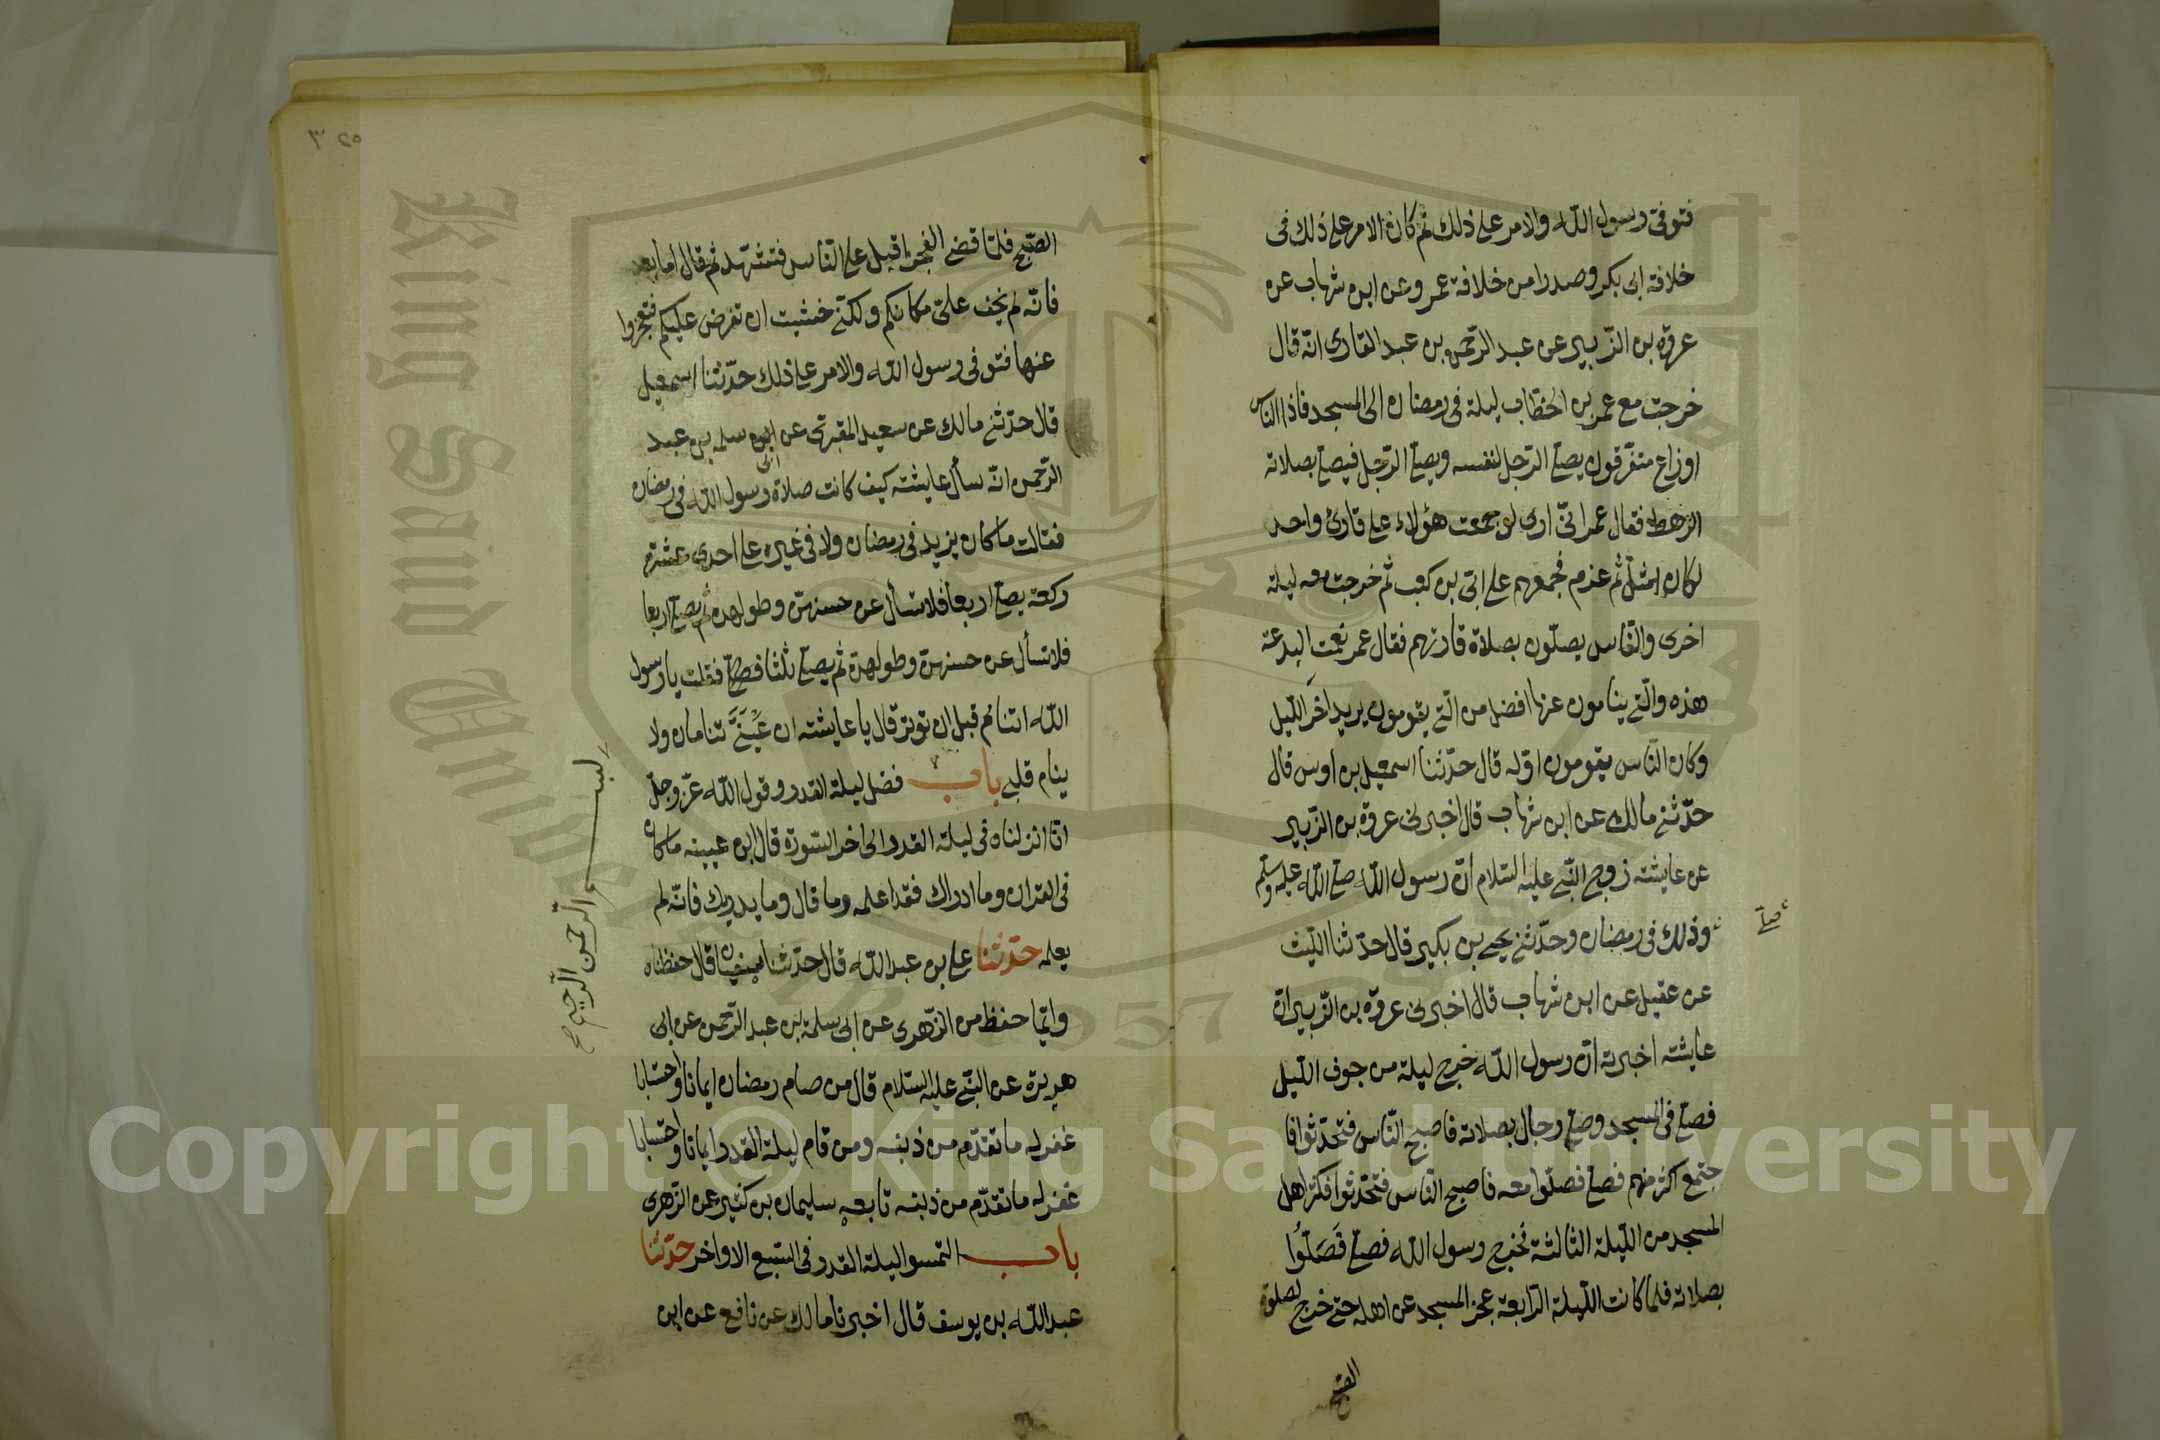 فتوفى رسول الله والامر على ذلك ثم كان الامر على ذلك فى
خلافة ابى بكر وصدرا من خلافة عمر وعن ابن شهاب عن
عروة بن الزبير عن عبد الرحمن بن عبد القارى انه قال
خرجت مع عمر بن الخطاب ليلة فى رمضان الى المسجد فاذا الناس
اوزاع متفرقون يصلى الرجل لنفسه ويصلى الرجل فيصلى بصلاته
الرهط فقال عمر انى ارى لو جمعت هؤلاء على قارئ واحد
لكان امثل ثم عزم فجمعهم على ابى بن كعب ثم خرجت معه ليلة
اخرى والناس يصلون بصلاة قارئهم فقال عمر نعمت البدعة
هذه والتى ينامون عنها افضل من التى يقومون يريد اخر الليل
وكان الناس يقومون اوله قال حدثنا اسمعيل بن اوس قال
حدثنى مالك عن ابن شهاب قال اخبرنى عروة بن الزبير
عن عايشة زوج النبى عليه السلام ان رسول الله صلى الله عليه وسلم
وذلك فى رمضان وحدثنى يحيى بن بكير قال حدثنا الليث
صلى
عن عقيل عن ابن شهاب قال اخبرنى عروة بن الزبير ان
عايشة اخبرته ان رسول الله خرج ليلة من جوف الليل
فصلى فى المسجد وصلى رجال بصلاته فاصبح الناس فتحدثوا فا
جتمع اكثر منهم فصلى فصلوا معه فاصبح الناس فتحدثوا فكثر اهل
المسجد من الليلة الثالثة فخرج رسول الله فصلى فَصَلَّوْا
بصلاته فلما كانت الليلة الرابعة عجز المسجد عن اهله حتى خرج لصلوة
الصبح
٣٢٥
الصبح فلما قضى الفجر اقبل على الناس فتشهد ثم قال اما بعد
فانه لم يخف على مكانكم ولكنى خشيت ان تفرض عليكم فتعجزوا
عنها فتوفى رسول الله والامر على ذلك حدثنا اسمعيل
قال حدثنى مالك عن سعيد المقبرى عن ابن سلمه بن عبد
ابى
الرحمن انه سأل عايشته كيف كانت صلاة رسول الله فى رمضان
فقالت ما كان يزيد فى رمضان ولا فى غيره على احدى عشرة
ركعة يصلى اربعا فلا تسأل عن حسنهن وطولهن ثم يصلى اربعا
فلا تسأل عن حسنهن وطولهن ثم يصلى ثلثا فقلت يا رسول
الله اتنام قبل ان توتر قال يا عايشته ان عَيْنَىَّ تنامان ولا
ينام قلبى باب فضل ليلة القدر وقول الله عز وجل
انا انزلناه فى ليلة القدر الى اخر السورة قال ابن عيينه ما كان
فى القران وما ادراك فقد اعلمه وما قال وما يدريك فانه لم
يعلمه حدثنا على بن عبد الله قال حدثنا سفيان قال حفظناه
وانما حفظ من الزهرى عن ابى سلمة بن عبد الرحمن عن ابى
هريرة عن النبى عليه السلام قال من صام رمضان ايمانا واحتسابا
غفر له ما تقدم من ذنبه ومن قام ليلة القدر ايمانا واحتسابا
غفر له ما تقدم من ذنبه تابعه سليمان بن كثير عن الزهرى
باب التمسوا ليلة القدر فى السبع الاواخر حدثنا
عبد الله بن يوسف قال اخبرنا مالك عن نافع عن ابن
الرحمن الرحيم
King Saud University
1957
Copyright © King Saud University